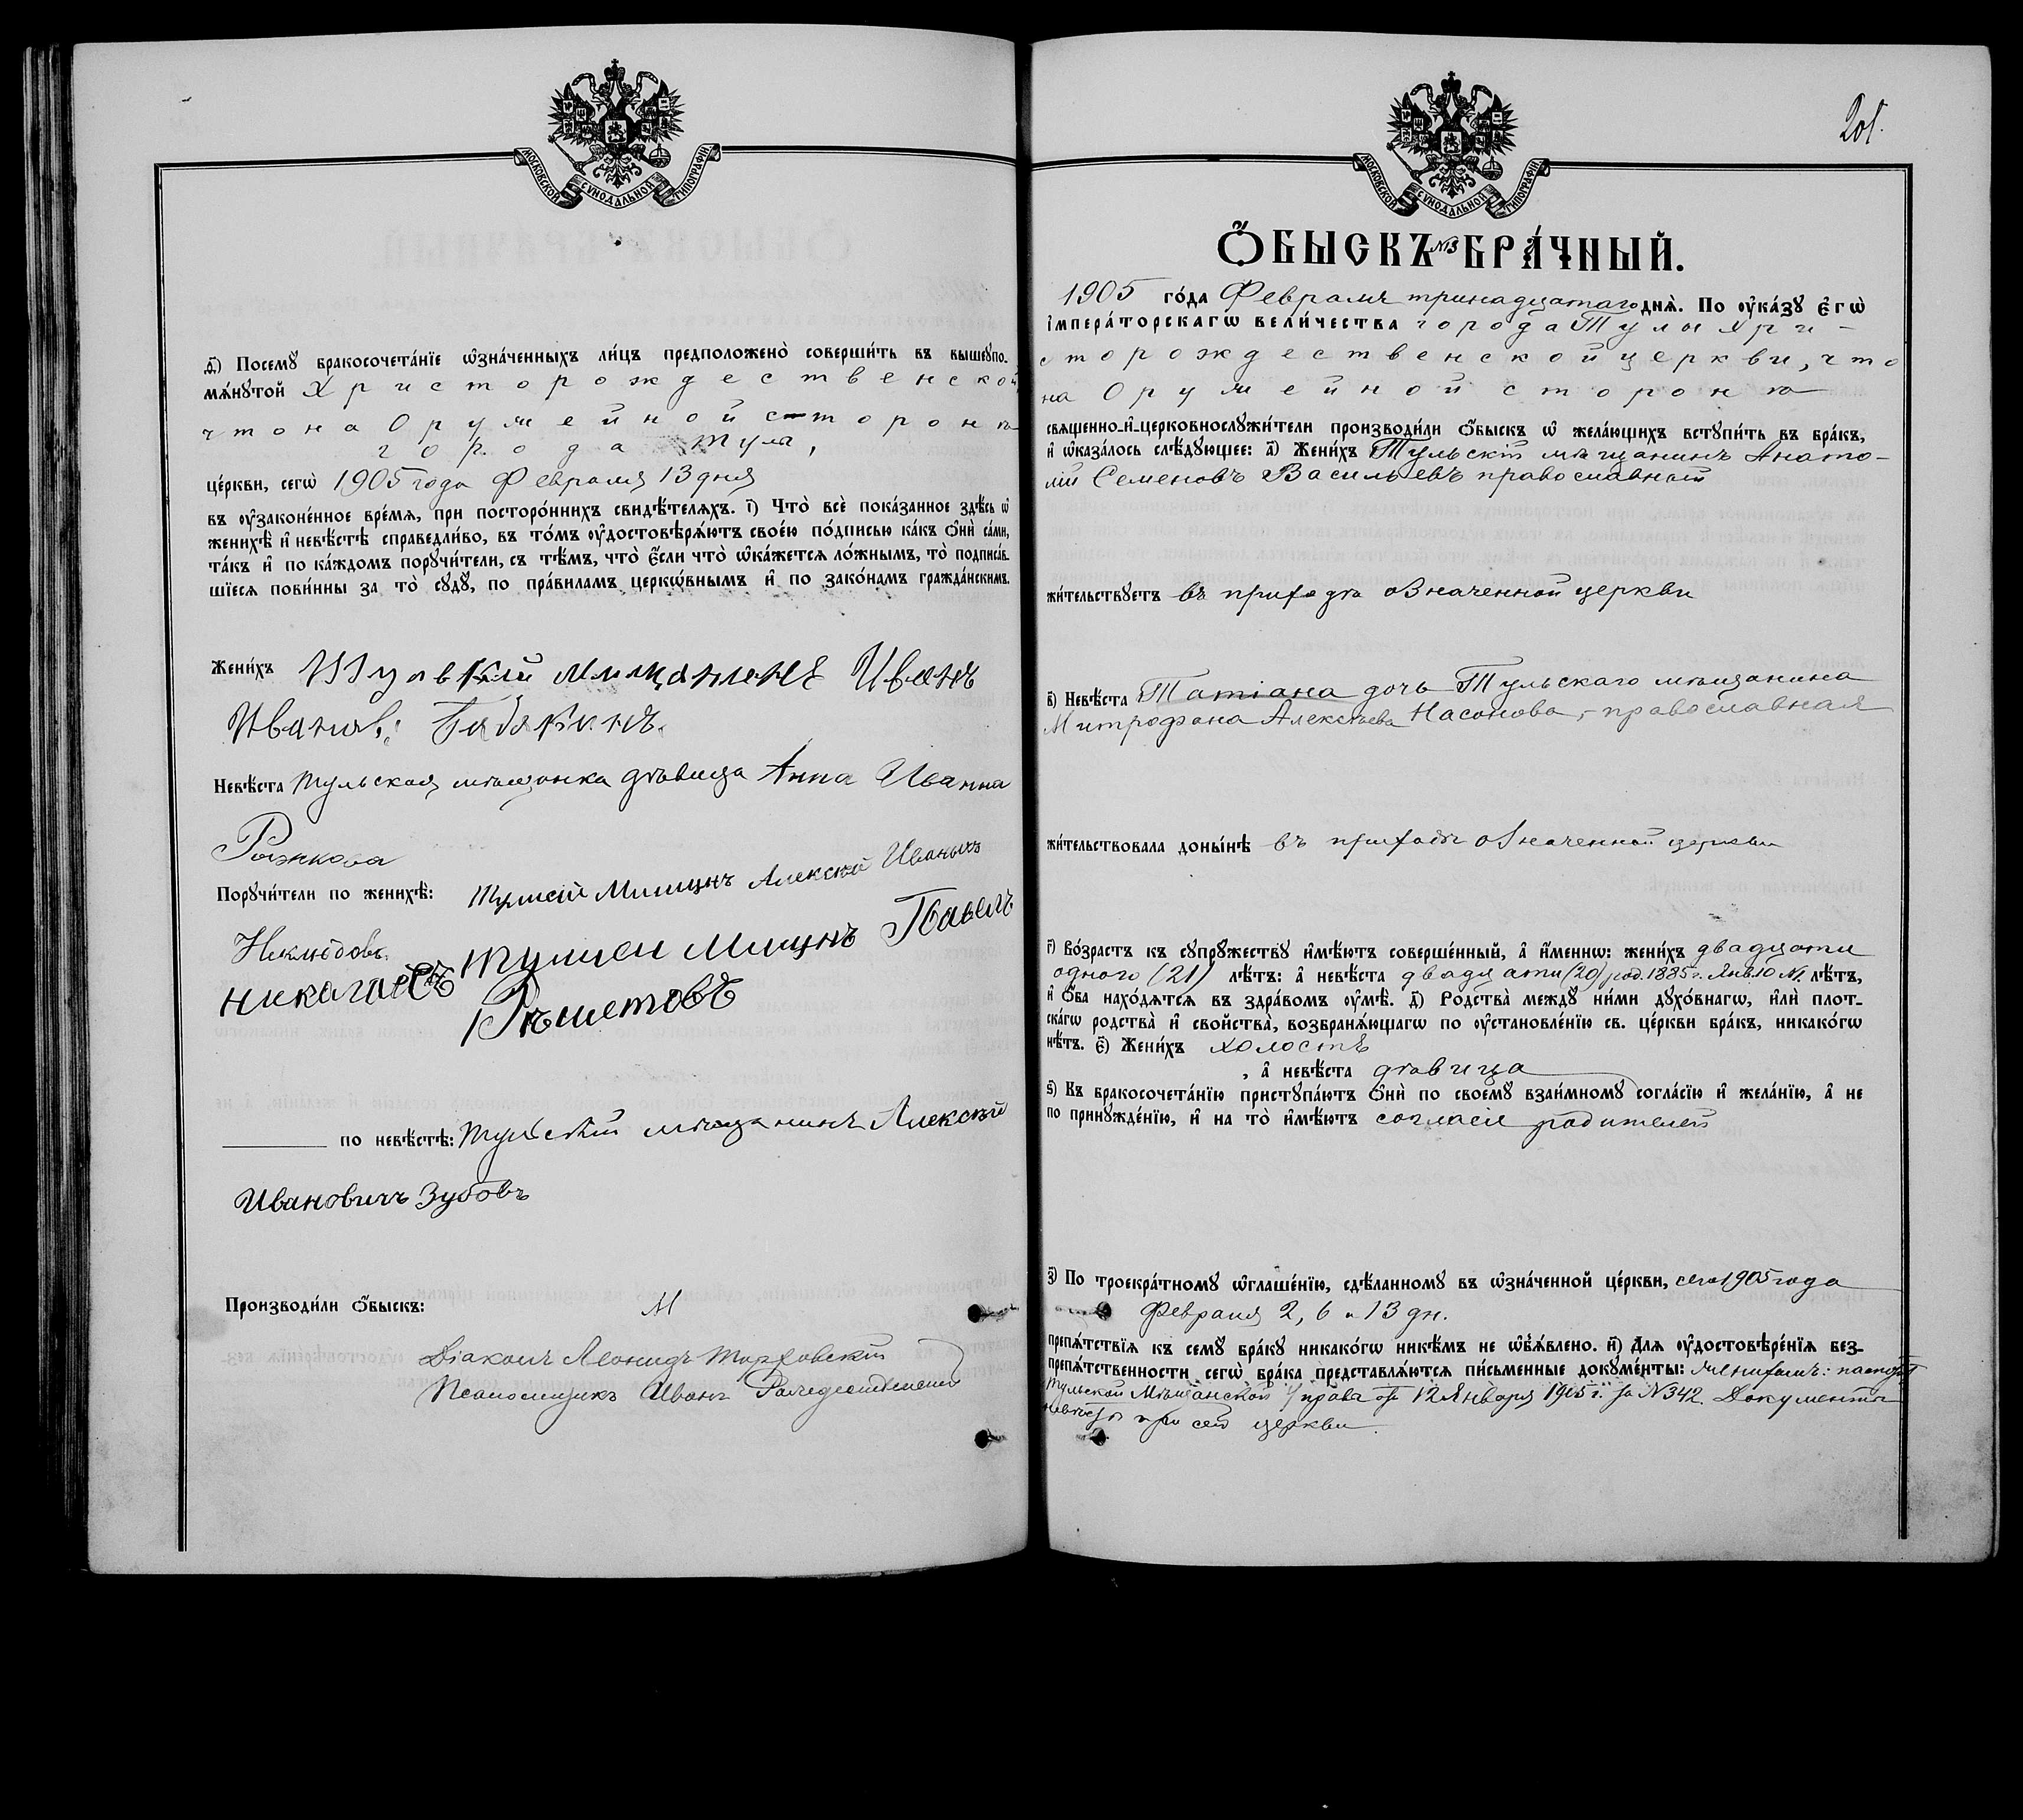 МОСКОВСКОЙ СѴНОДАЛЬНОЙ ТИПОГРАФІИ
Ѳ҃) Посемꙋ бракосочета́нїе ѡ҆зна́ченныхъ ли́цъ предположено̀ соверши́ть въ вышеꙋпо-
мѧ́нꙋтой Христорождественской
что на Оружейной сторонѣ
города Тула,
це́ркви, сегѡ̀ 1905 года Февраля 13 дня
въ ᲂу҆законе́нное вре́мѧ, при посторо́ннихъ свидѣ́телѧхъ. і҃) Что̀ всѐ пока́занное здѣ́сь ѡ҆
женихѣ̀ и҆ невѣ́стѣ справедли́во, въ то́мъ ᲂу҆достовѣрѧ́ютъ свое́ю по́дписью ка́къ ѻ҆нѝ са́ми,
та́къ и҆ по ка́ждомъ порꙋчи́тели, съ тѣ́мъ, что̀ є҆́сли что̀ ѡ҆ка́жетсѧ ло́жнымъ, то̀ подписа́в-
шїесѧ пови́нны за то̀ сꙋдꙋ̀, по пра́виламъ церкѡ́внымъ и҆ по зако́намъ гражда́нскимъ.
Жени́хъ Тульскій мищанинъ Иванъ
Иванов: Бабякинъ.
Невѣ́ста Тульская мѣщанка дѣвица Анна Иванна
Рыжкова
Порꙋчи́тели по женихѣ̀: Алексей Иваныч
Неклюдовъ. Павелъ
Николаевъ Рѣшетовъ
по невѣ́стѣ: Тульскій мѣщанинъ Алексѣй
Ивановичъ Зубовъ
Производи́ли ѻ҆́быскъ:
Діаконъ Леонидъ
Псаломщикъ Иванъ Рождественскій
201.
МОСКОВСКОЙ СѴНОДАЛЬНОЙ ТИПОГРАФІИ
Ѻ҆́БЫСКЪ №3 БРА́ЧНЫЙ.
1905 го́да Февраля тринадцатаго днѧ̀. По ᲂу҆ка́зꙋ є҆гѡ̀
і҆мпера́торскагѡ вели́чества города Тулы Хри-
сторождественской церкви, что
на Оружейной сторонѣ
свѧще́нно-и҆-церковнослꙋжи́тели производи́ли ѻ҆́быскъ ѡ҆ жела́ющихъ встꙋпи́ть въ бра́къ,
и҆ ѡ҆каза́лось слѣ́дꙋющее: а҃) Жени́хъ Тульскій мѣщанинъ Анато-
лій Семеновъ Васильевъ православный
жи́тельствꙋетъ въ приходѣ означенной церкви
в҃) Невѣ́ста Татіана дочь Тульскаго мѣщанина
Митрофана Алексѣева Насонова, - православная
жи́тельствовала доны́нѣ въ приходѣ означенной церкви
г҃) Во́зрастъ къ сꙋпрꙋ́жествꙋ и҆мѣ́ютъ соверше́нный, а҆ и҆́меннѡ: жени́хъ двадцати
одного (21) лѣ́тъ: а҆ невѣ́ста двадцати (20) род. 1885 г. Янв. 10 лѣ́тъ,
и҆ ѻ҆́ба нахо́дѧтсѧ въ здра́вомъ ᲂу҆мѣ̀. д҃) Родства̀ междꙋ̀ ни́ми дꙋхо́внагѡ, и҆лѝ плот-
ска́гѡ родства̀ и҆ свойства̀, возбранѧ́ющагѡ по ᲂу҆становле́нїю св. це́ркви бра́къ, никако́гѡ
нѣ́тъ. є҃) Жени́хъ холостъ
, а҆ невѣ́ста дѣвица
ѕ҃) Къ бракосочета́нїю пристꙋпа́ютъ ѻ҆нѝ по своемꙋ̀ взаи́мномꙋ согла́сїю и҆ жела́нїю, а҆ не
по принꙋжде́нїю, и҆ на то̀ и҆мѣ́ютъ согласіе родителей
з҃) По троекра́тномꙋ ѡ҆глаше́нїю, сдѣ́ланномꙋ въ ѡ҆зна́ченной це́ркви, сего 1905 года
Февраля 2, 6 и 13 дн.
препѧ́тствїѧ къ семꙋ̀ бра́кꙋ никако́гѡ никѣ́мъ не ѡ҆б̾ѧ́влено. и҃) Длѧ ᲂу҆достовѣре́нїѧ без-
препѧ́тственности сегѡ̀ бра́ка представлѧ́ютсѧ пи́сьменные докꙋме́нты: женихомъ: паспортъ
Тульской Мѣщанской Управы отъ 12 Января 1905 г. за №342. Документы
невѣсты при сей церкви.